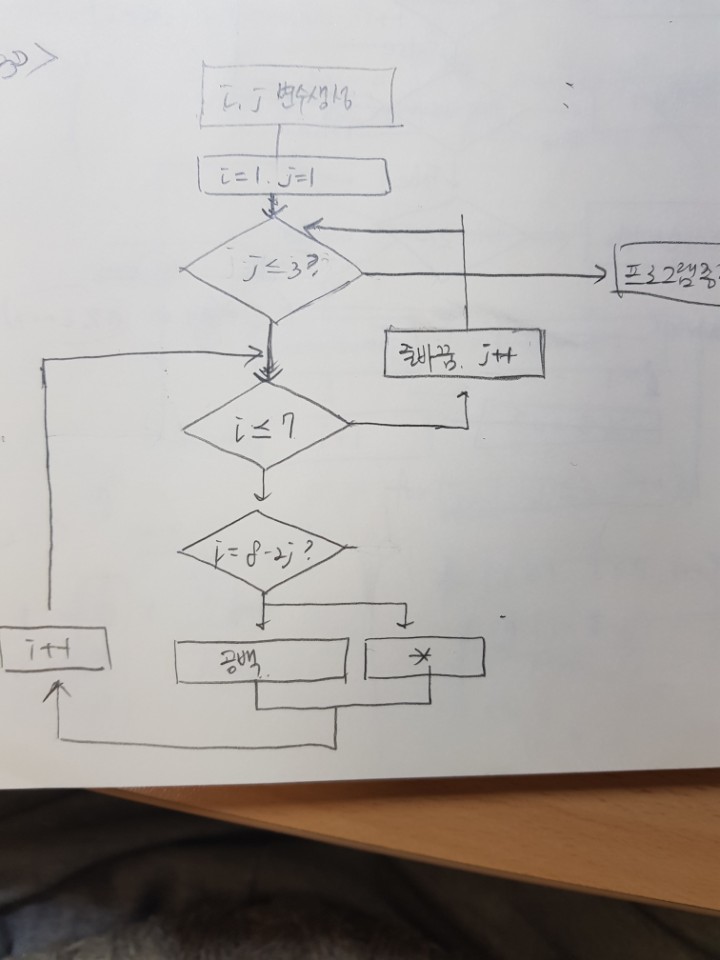 i, j 변수생성
i=1. j=1
j ≤ 3?
프로그램종
줄바꿈. j++
i ≤ 7
i = 8-2j ?
i++
공백.
*